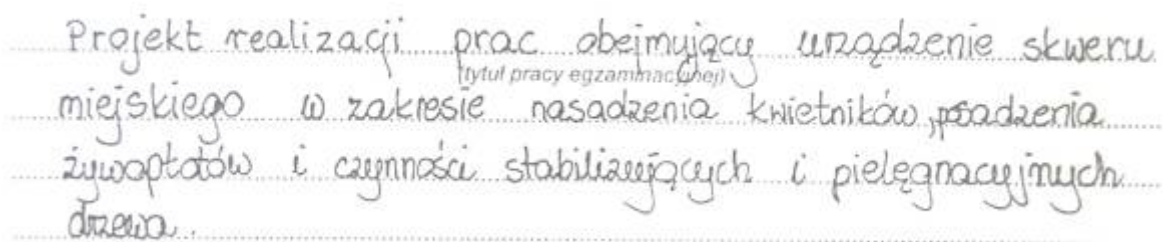 Projekt realizacji prac obejmujący urządzenie skweru
(tytuł pracy egzaminacyjnej)
miejskiego w zakresie nasadzenia kwietników, posadzenia
żywopłotów i czynności stabilizujących i pielęgnacyjnych
drzewa.